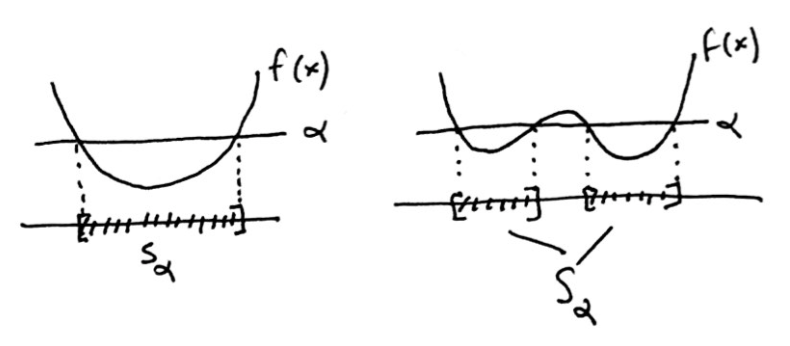 f(x)
α
S_α
f(x)
α
S_α